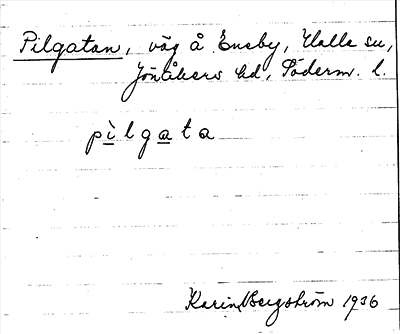 Pilgatan, väg å Eneby, Halla sn,
Jönåkers hd, Söderm. l.
pìlgata
Karin Bergström 1936